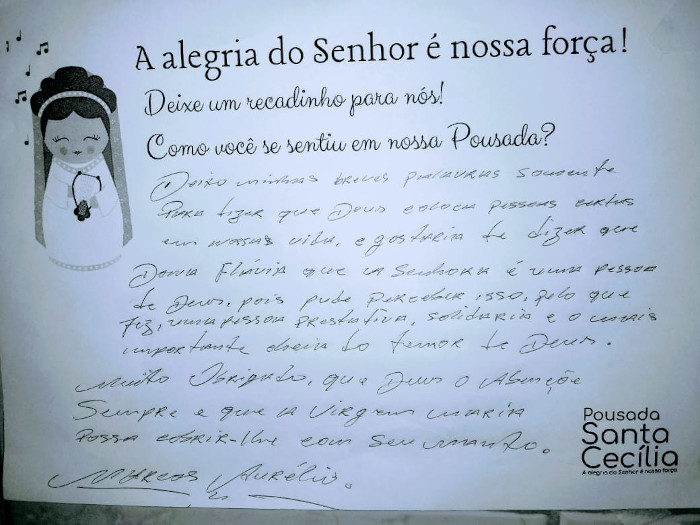 A alegria do Senhor é nossa força!
Deixe um recadinho para nós!
Como você se sentiu em nossa Pousada?
Deixo minhas breves palavras somente
Para dizer que Deus coloca pessoas certas
em nossas vida, e gostaria de dizer que
Dona Flávia que a Senhora é uma pessoa
de Deus, pois pude perceber isso, pelo que
fiz, uma pessoa prestativa, solidaria e o mais
importante cheia do temor de Deus.
Muito Obrigado, que Deus o Abençõe
Sempre e que a Virgem maria
possa cobrir-lhe com seu manto.
Marcos Aurélio.
Pousada
Santa
Cecília
A alegria do Senhor é nossa força